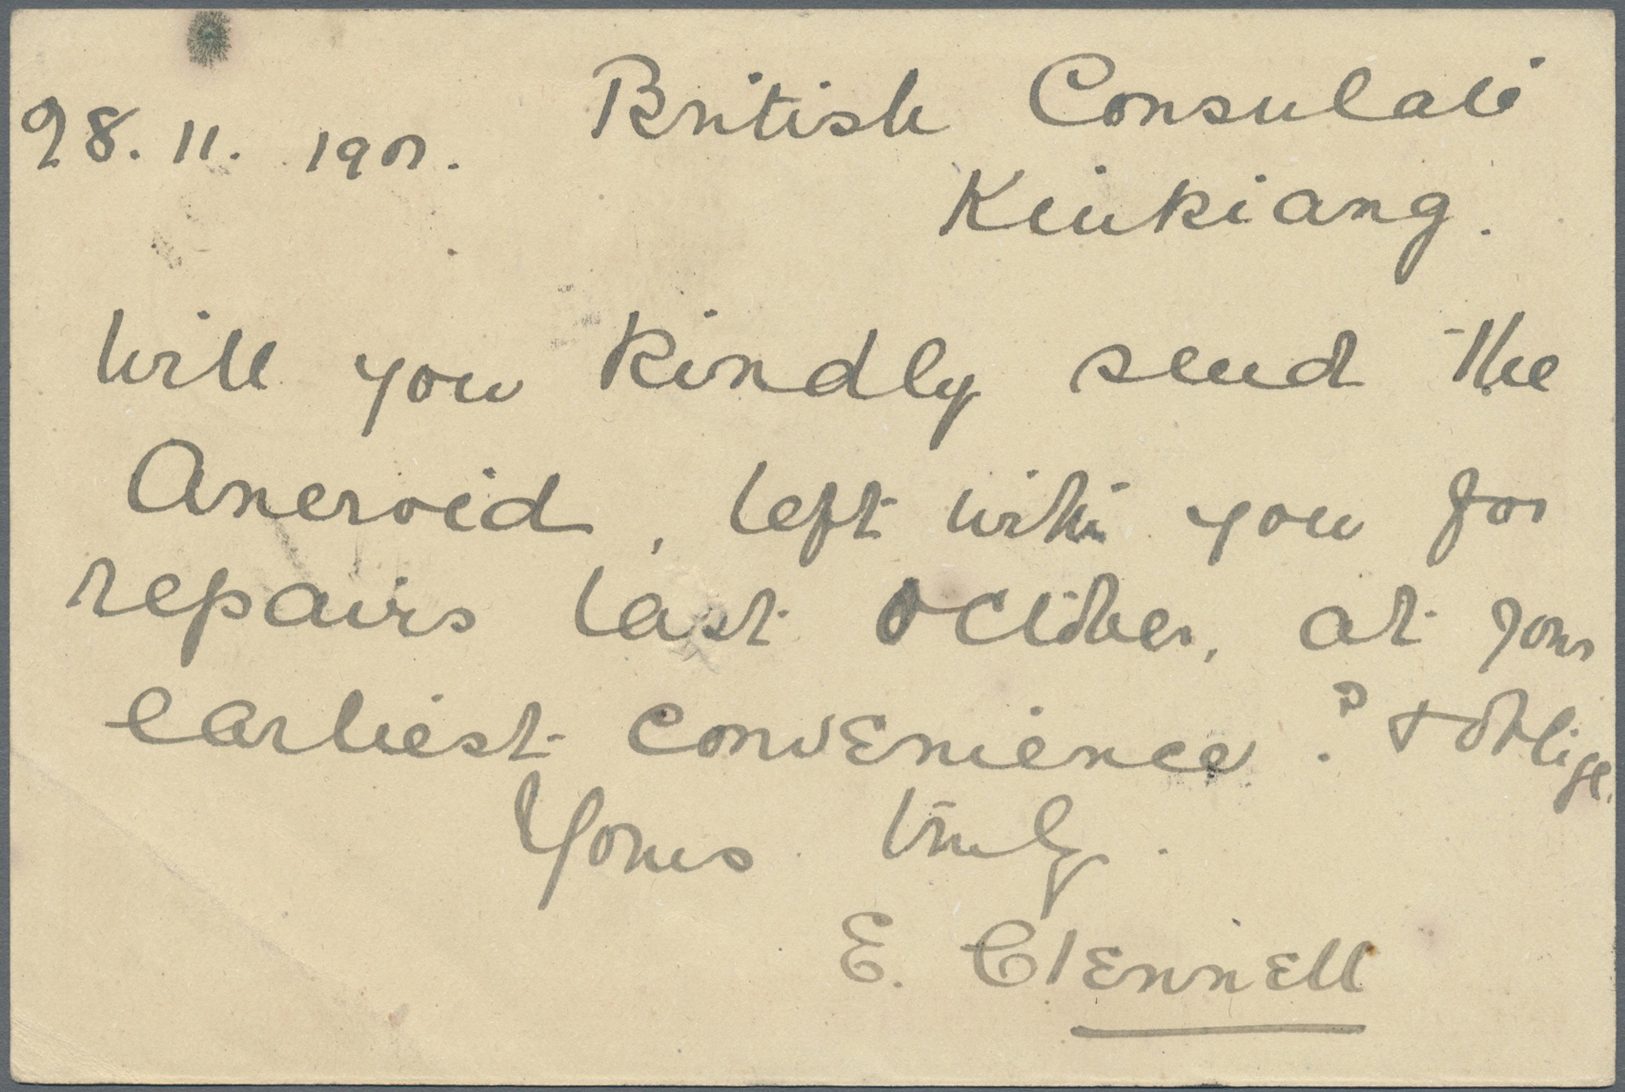 28. 11. 1901. British Consulate
Kiukiang.
Will you kindly send the
Aneroid, left with you for
repairs last October, at your
earliest convenience? & oblige.
Yours truly.
E. Clennell